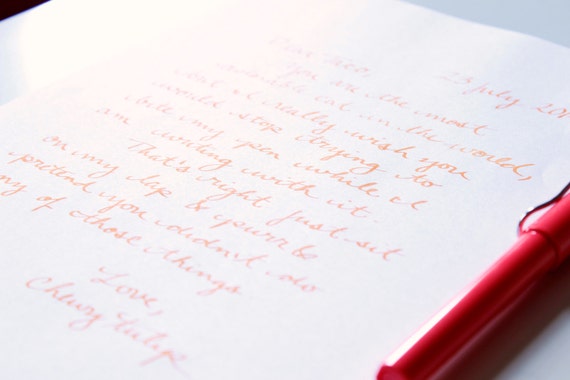 23 July 201
Dear Taco,
You are the most
adorable cat in the world,
and I really wish you
would stop trying to
bite my pen while I
am writing with it
That's right just sit
on my lap & purr &
pretend you didn't do
any of those things
Love,
Cheery